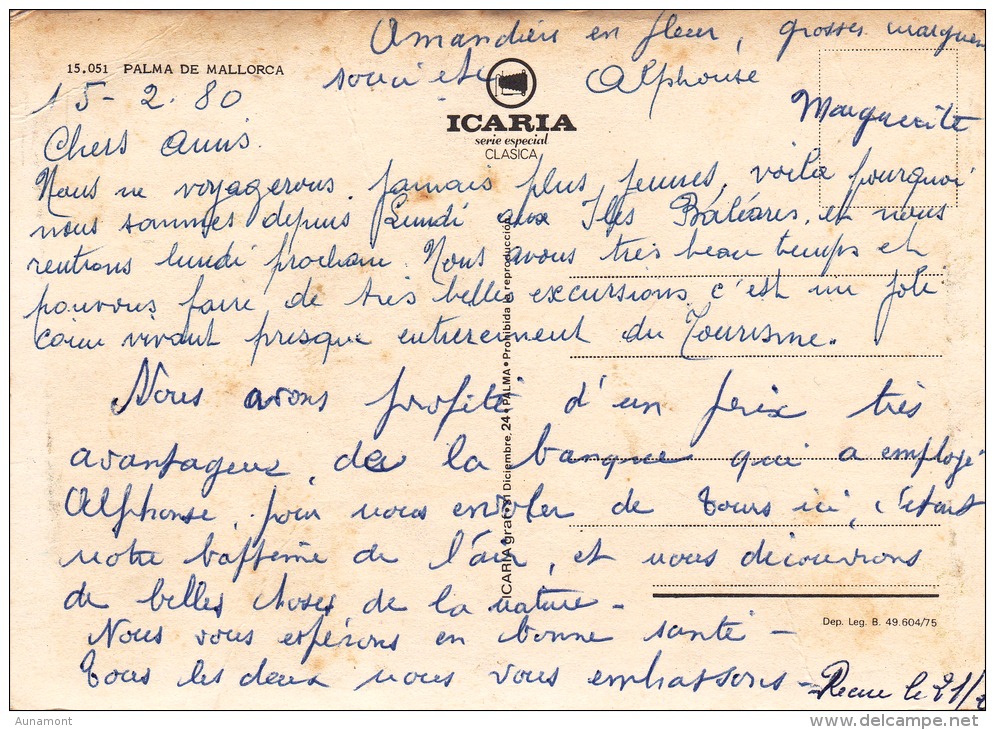 Amandiers en fleur, grosses marguer
15.051 PALMA DE MALLORCA
souci etc
Alphonse
15-2.80
Marguerite
ICARIA
serie especial
CLASICA
Chers Amis.
Nous ne voyagerons jamais plus jeunes, voila pourquoi
nous sommes depuis Lundi aux Iles Baléares, et nous
rentrons lundi prochain. Nous avons très beau temps et
pouvons faire de très belles excursions c'est un joli
coin vivant presque entierement du Tourisme.
Nous avons profité d'un prix très
avantageux de la banque qui a employé
Alphonse, pour nous envoler de Tours ici, c'était
notre baptême de l'air, et nous découvrons
de belles choses de la nature -
Nous vous espérons en bonne santé -
Tous les deux nous vous embrassons -
Recue le 21/2
ICARIA graf • 31 Diciembre, 24 • PALMA • Prohibida la reproducción
Dep. Leg. B. 49.604/75
Aunamont
www.delcampe.net